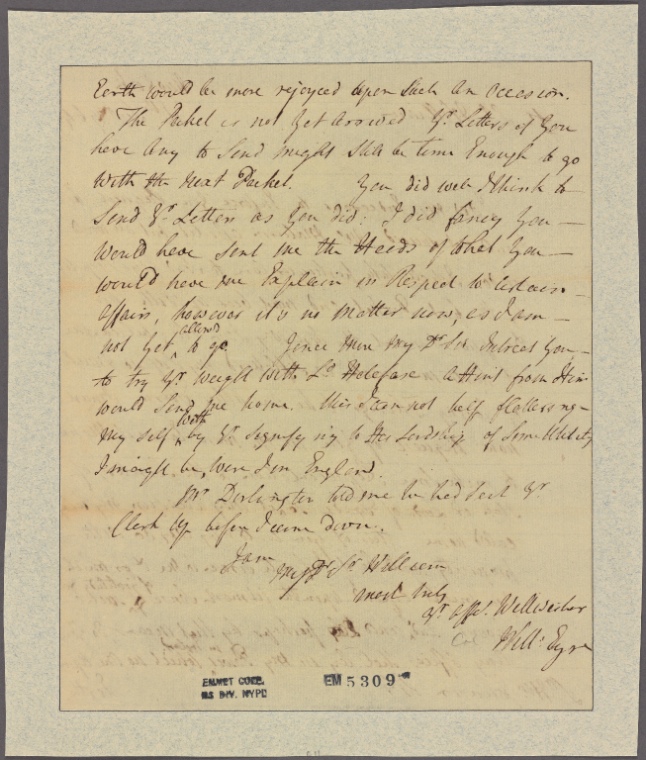 Earth would be more rejoyced upon Such An Occasion.
The Packet is not Yet Arrived Yr. Letters if You
have Any to Send might Still be time Enough to go
With the next Packet. You did well I think to
Send Yr. Letters as You did: I did fancy You —
Would have Sent me the Heads of What You —
would have me Explain in Respect to
Affairs, however it's no Matter now, as I am —
not Yet allow'd to go Sir Intreat You —
to try Yr. weight with Ld. Halefax A Hint from Him
would Send me home. this I can not help flattering —
my self with by Yr. Signifying to His Lordship of Some Utility
I might be, were I in England.
Mr. Darlington told me he had Sent Yr.
Clerk Up before I came down.
I am
My Dr. Sr. William
most truly
Yr. Affte. Wellwisher
Col
Will: Eyre
EMMET COLL.
MS DIV. NYPL
EM 5309